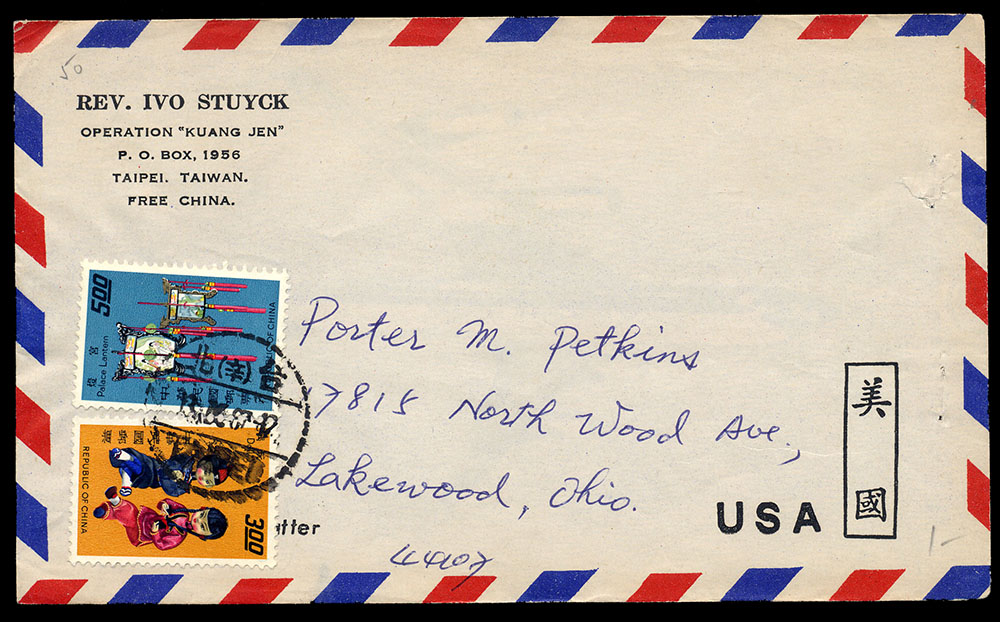 .50
REV. IVO STUYCK
OPERATION "KUANG JEN"
P. O. BOX, 1956
TAIPEI. TAIWAN.
FREE CHINA.
5.00
宮燈
Palace Lantern
REPUBLIC OF CHINA
REPUBLIC OF CHINA
3.00
Porter M. Petkins
17815 North Wood Ave.,
Lakewood, Ohio.
44107
USA
美國
1-